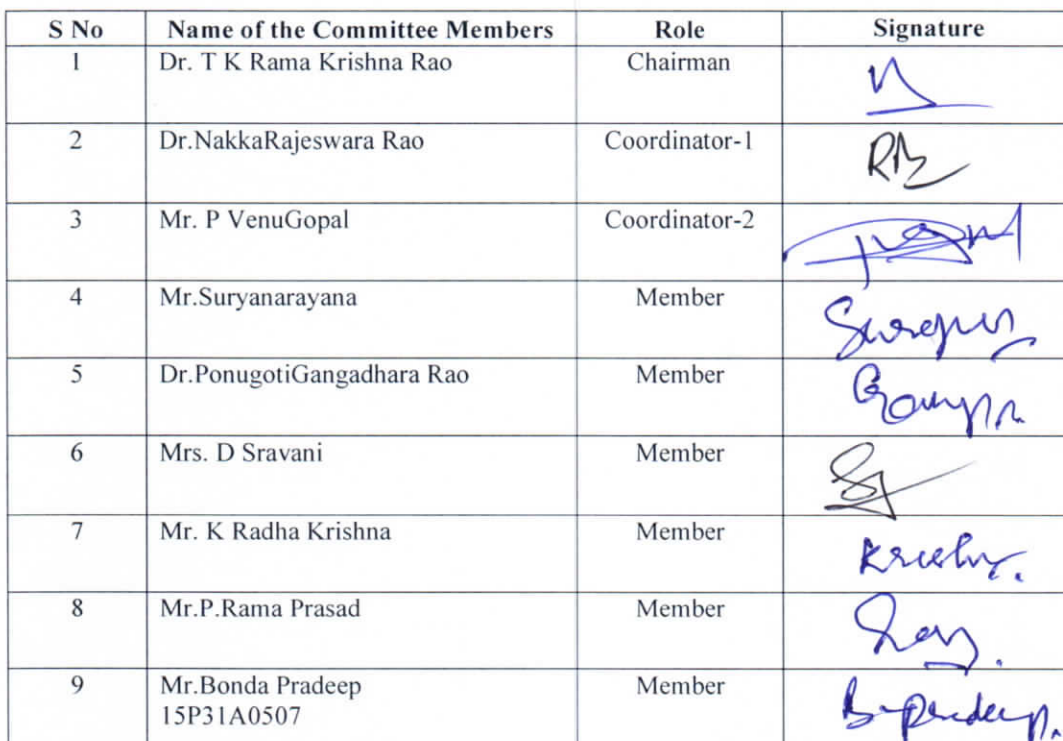 S No Name of the Committee Members Role Signature
1 Dr. T K Rama Krishna Rao Chairman
2 Dr.NakkaRajeswara Rao Coordinator-1
3 Mr. P VenuGopal Coordinator-2
4 Mr.Suryanarayana Member
5 Dr.PonugotiGangadhara Rao Member
6 Mrs. D Sravani Member
7 Mr. K Radha Krishna Member
8 Mr.P.Rama Prasad Member
9 Mr.Bonda Pradeep Member
15P31A0507